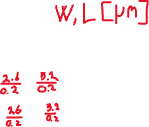 W, L [µm]
2.6/0.2 5.2/0.2
26/0.2 5.2/0.2